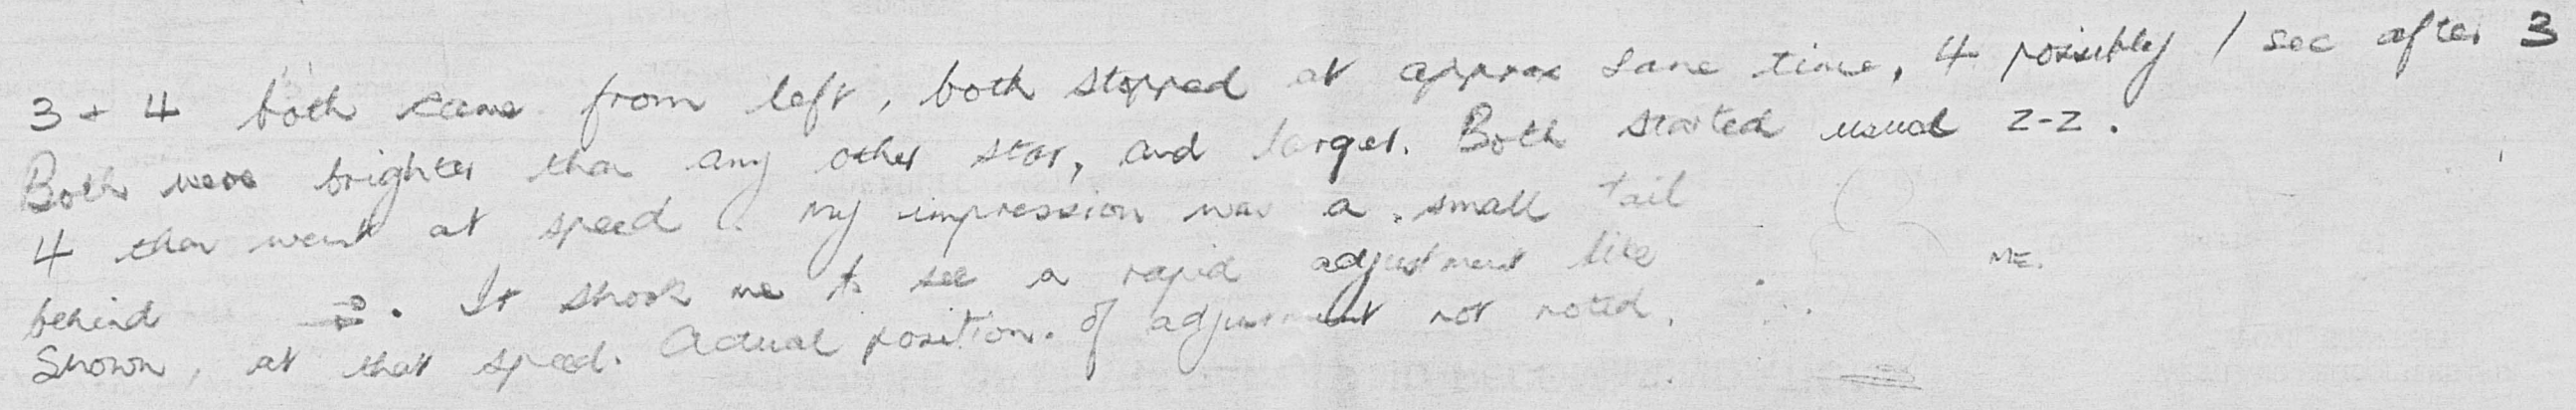 3 + 4 both came from left, both stopped at approx same time, 4 possibly 1 sec after 3
Both were brighter than any other star, and larger. Both started usual z-z.
4 then went at speed. My impression was a small tail
behind. It shook me to see a rapid adjustment like
ME.
shown, at that speed. Actual position of adjustment not noted.